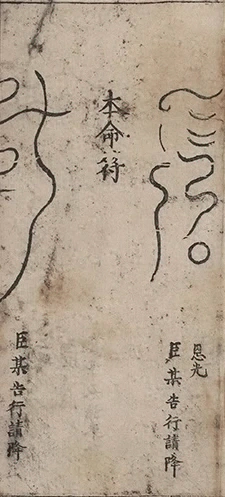 恩光
臣某告行請降
本命符
臣某告行請降